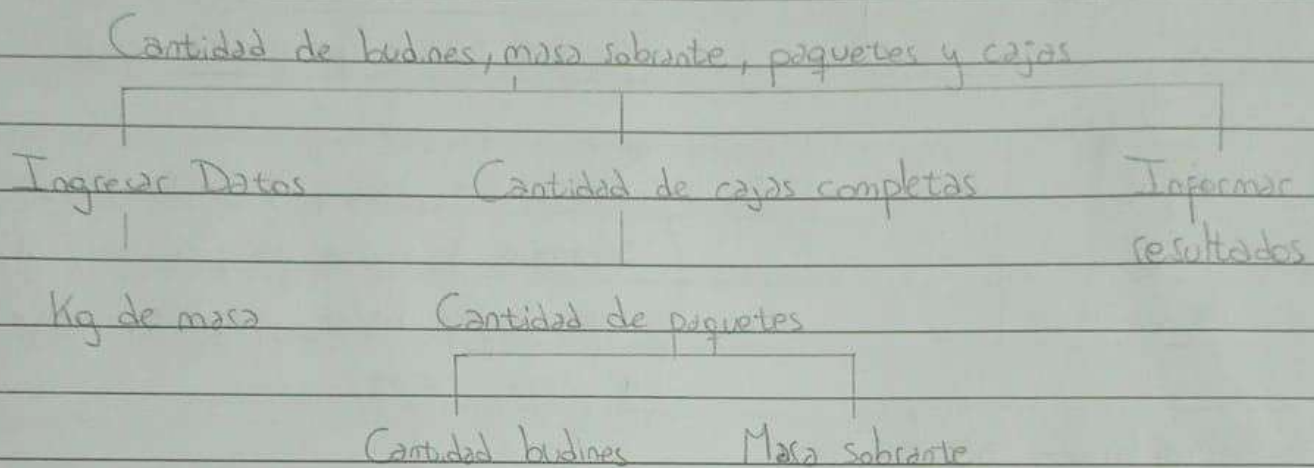 Cantidad de budines, masa sobrante, paquetes y cajas
Ingresar Datos Cantidad de cajas completas Informar
resultados
Kg de masa Cantidad de paquetes
Cantidad budines Masa sobrante